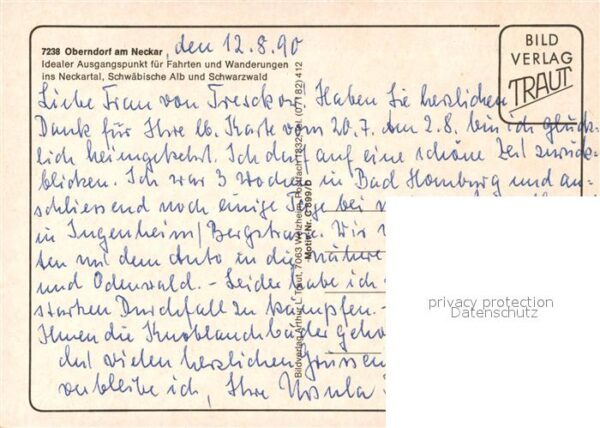 7238 Oberndorf am Neckar, den 12.8.90
Idealer Ausgangspunkt für Fahrten und Wanderungen
ins Neckartal, Schwäbische Alb und Schwarzwald
BILD
VERLAG
TRAUT
Liebe Frau von Tresckow, Haben Sie herzlichen
Dank für Ihre lb. Karte vom 20.7. Am 2.8. bin ich glück-
lich heimgekehrt. Ich darf auf eine schöne Zeit zurück-
blicken. Ich war 3 Wochen in Bad Homburg und an-
schliessend noch einige Tage bei
in Jugenheim/Bergstrasse. Wir
ten mit dem Auto in die nähere
und Odenwald. - Leider habe ich
starken Durchfall zu kämpfen. -
Ihnen die Knoblauchbäder
Mit vielen herzlichen Grüssen
verbleibe ich, Ihre Ursula
Bildverlag Arthur L. Traut, 7063 Welzheim, Postfach 1832, Tel. (07182) 412
Motiv-Nr. C 899/b
privacy protection
Datenschutz